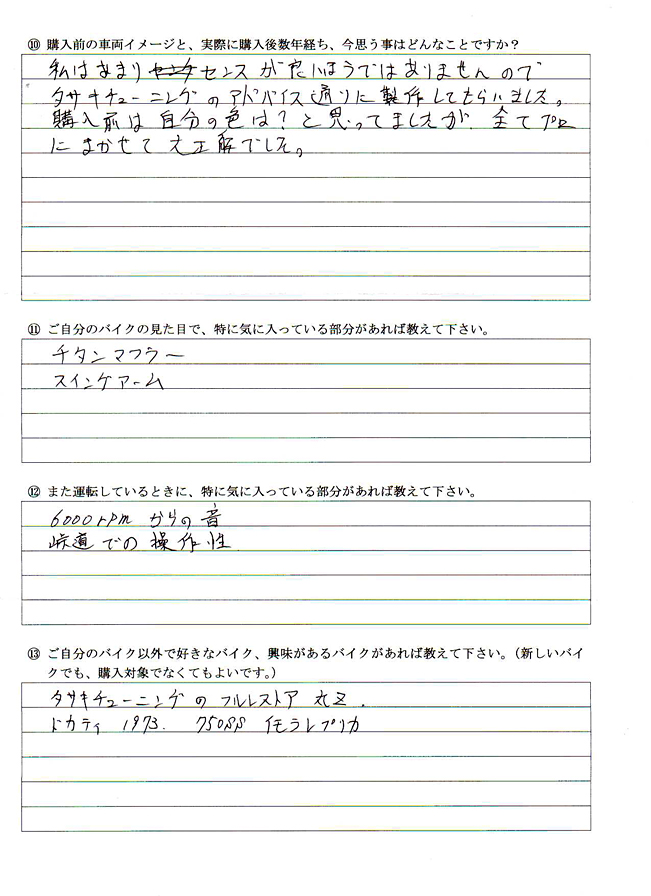 ⑩ 購入前の車両イメージと、実際に購入後数年経ち、今思う事はどんなことですか？
私はあまり センスがたいほうではありませんので
タサキチューニングのアドバイス通りに製作してもらいました。
購入前は自分の色は？と思ってましたが、全てプロ
にまかせて大正解でした。
⑪ ご自分のバイクの見た目で、特に気に入っている部分があれば教えて下さい。
チタンマフラー
スイングアーム
⑫ また運転しているときに、特に気に入っている部分があれば教えて下さい。
6000rpm からの音
峠道での操作性
⑬ ご自分のバイク以外で好きなバイク、興味があるバイクがあれば教えて下さい。（新しいバイ
クでも、購入対象でなくてもよいです。）
タサキチューニングのフルレストア
ドカティ 1973. 750SS イモラレプリカ